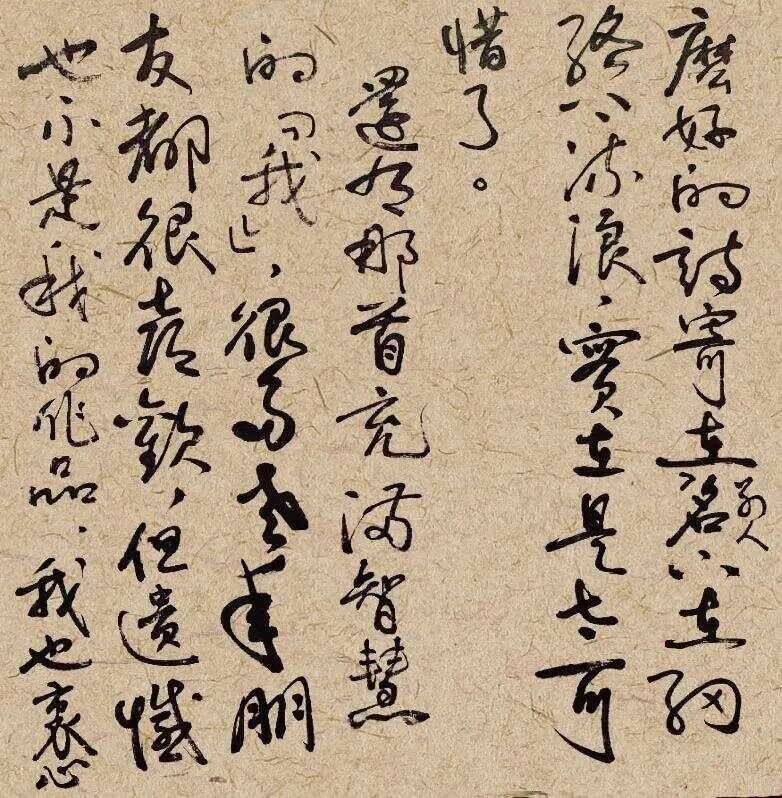 麼好的詩寄在別人名下在網
絡下流浪，實在是太可
惜了。
還有那首充滿智慧
的「我」，很多老年朋
友都很喜歡，但遺憾
也不是我的作品，我也衷心